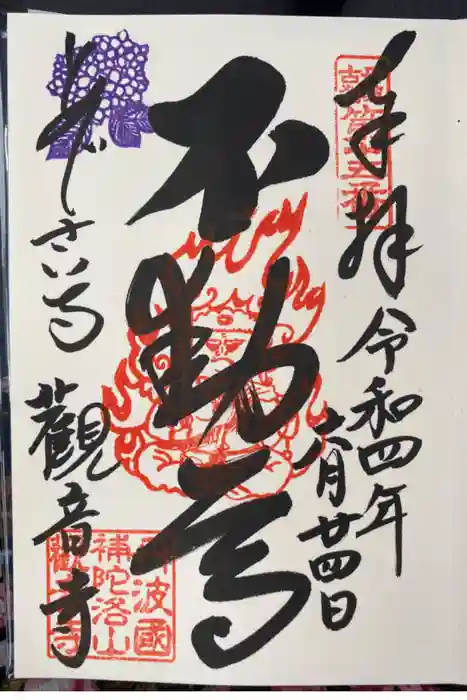 奉拝
令和四年
六月廿四日
不動尊
あじさい寺
觀音寺
阿波國
補陀洛山
觀音寺